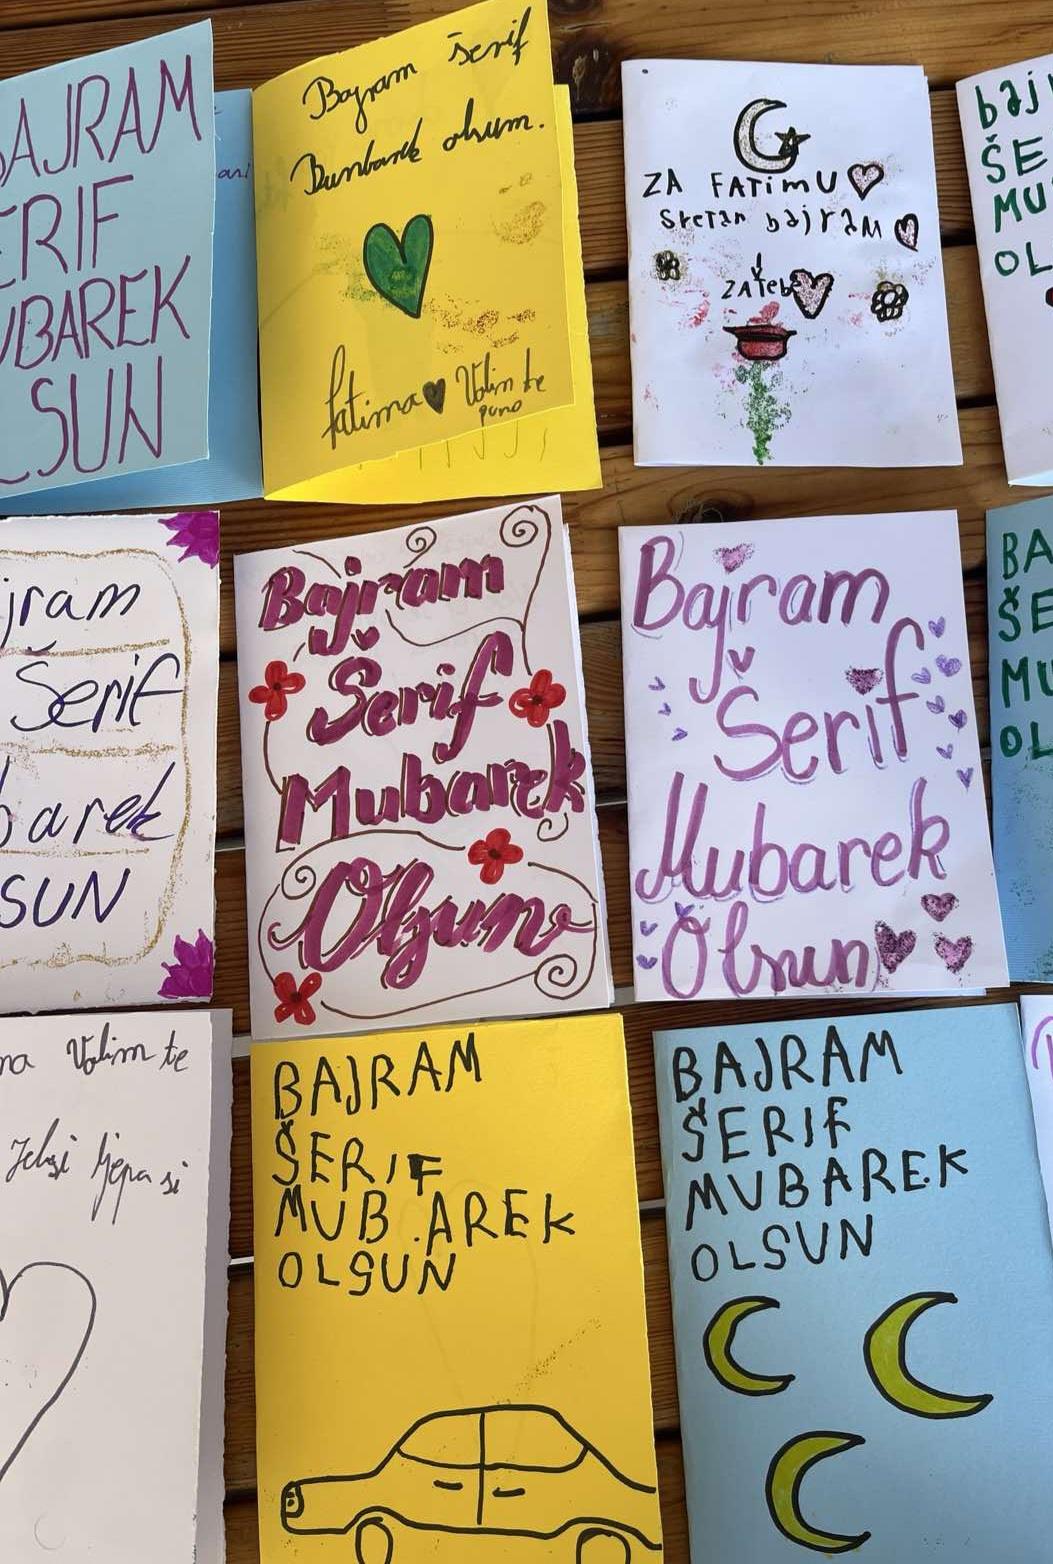 BAJRAM
ERIF
UBAREK
SUN
ani
Bajram šerif
Bumbarek olsum.
fatima Volim te
puno
ZA FATIMU
Sretan bajram
ZA tebe
baj
ŠE
MU
OL
jram
Šerif
barek
SUN
Bajram
Šerif
Mubarek
Olsun
Bajram
Šerif
Mubarek
Olsun
BA
ŠE
MU
OL
na Volim te
ljepa si
BAJRAM
ŠERIF
MUB.AREK
OLSUN
BAJRAM
ŠERIF
MUBAREK
OLSUN